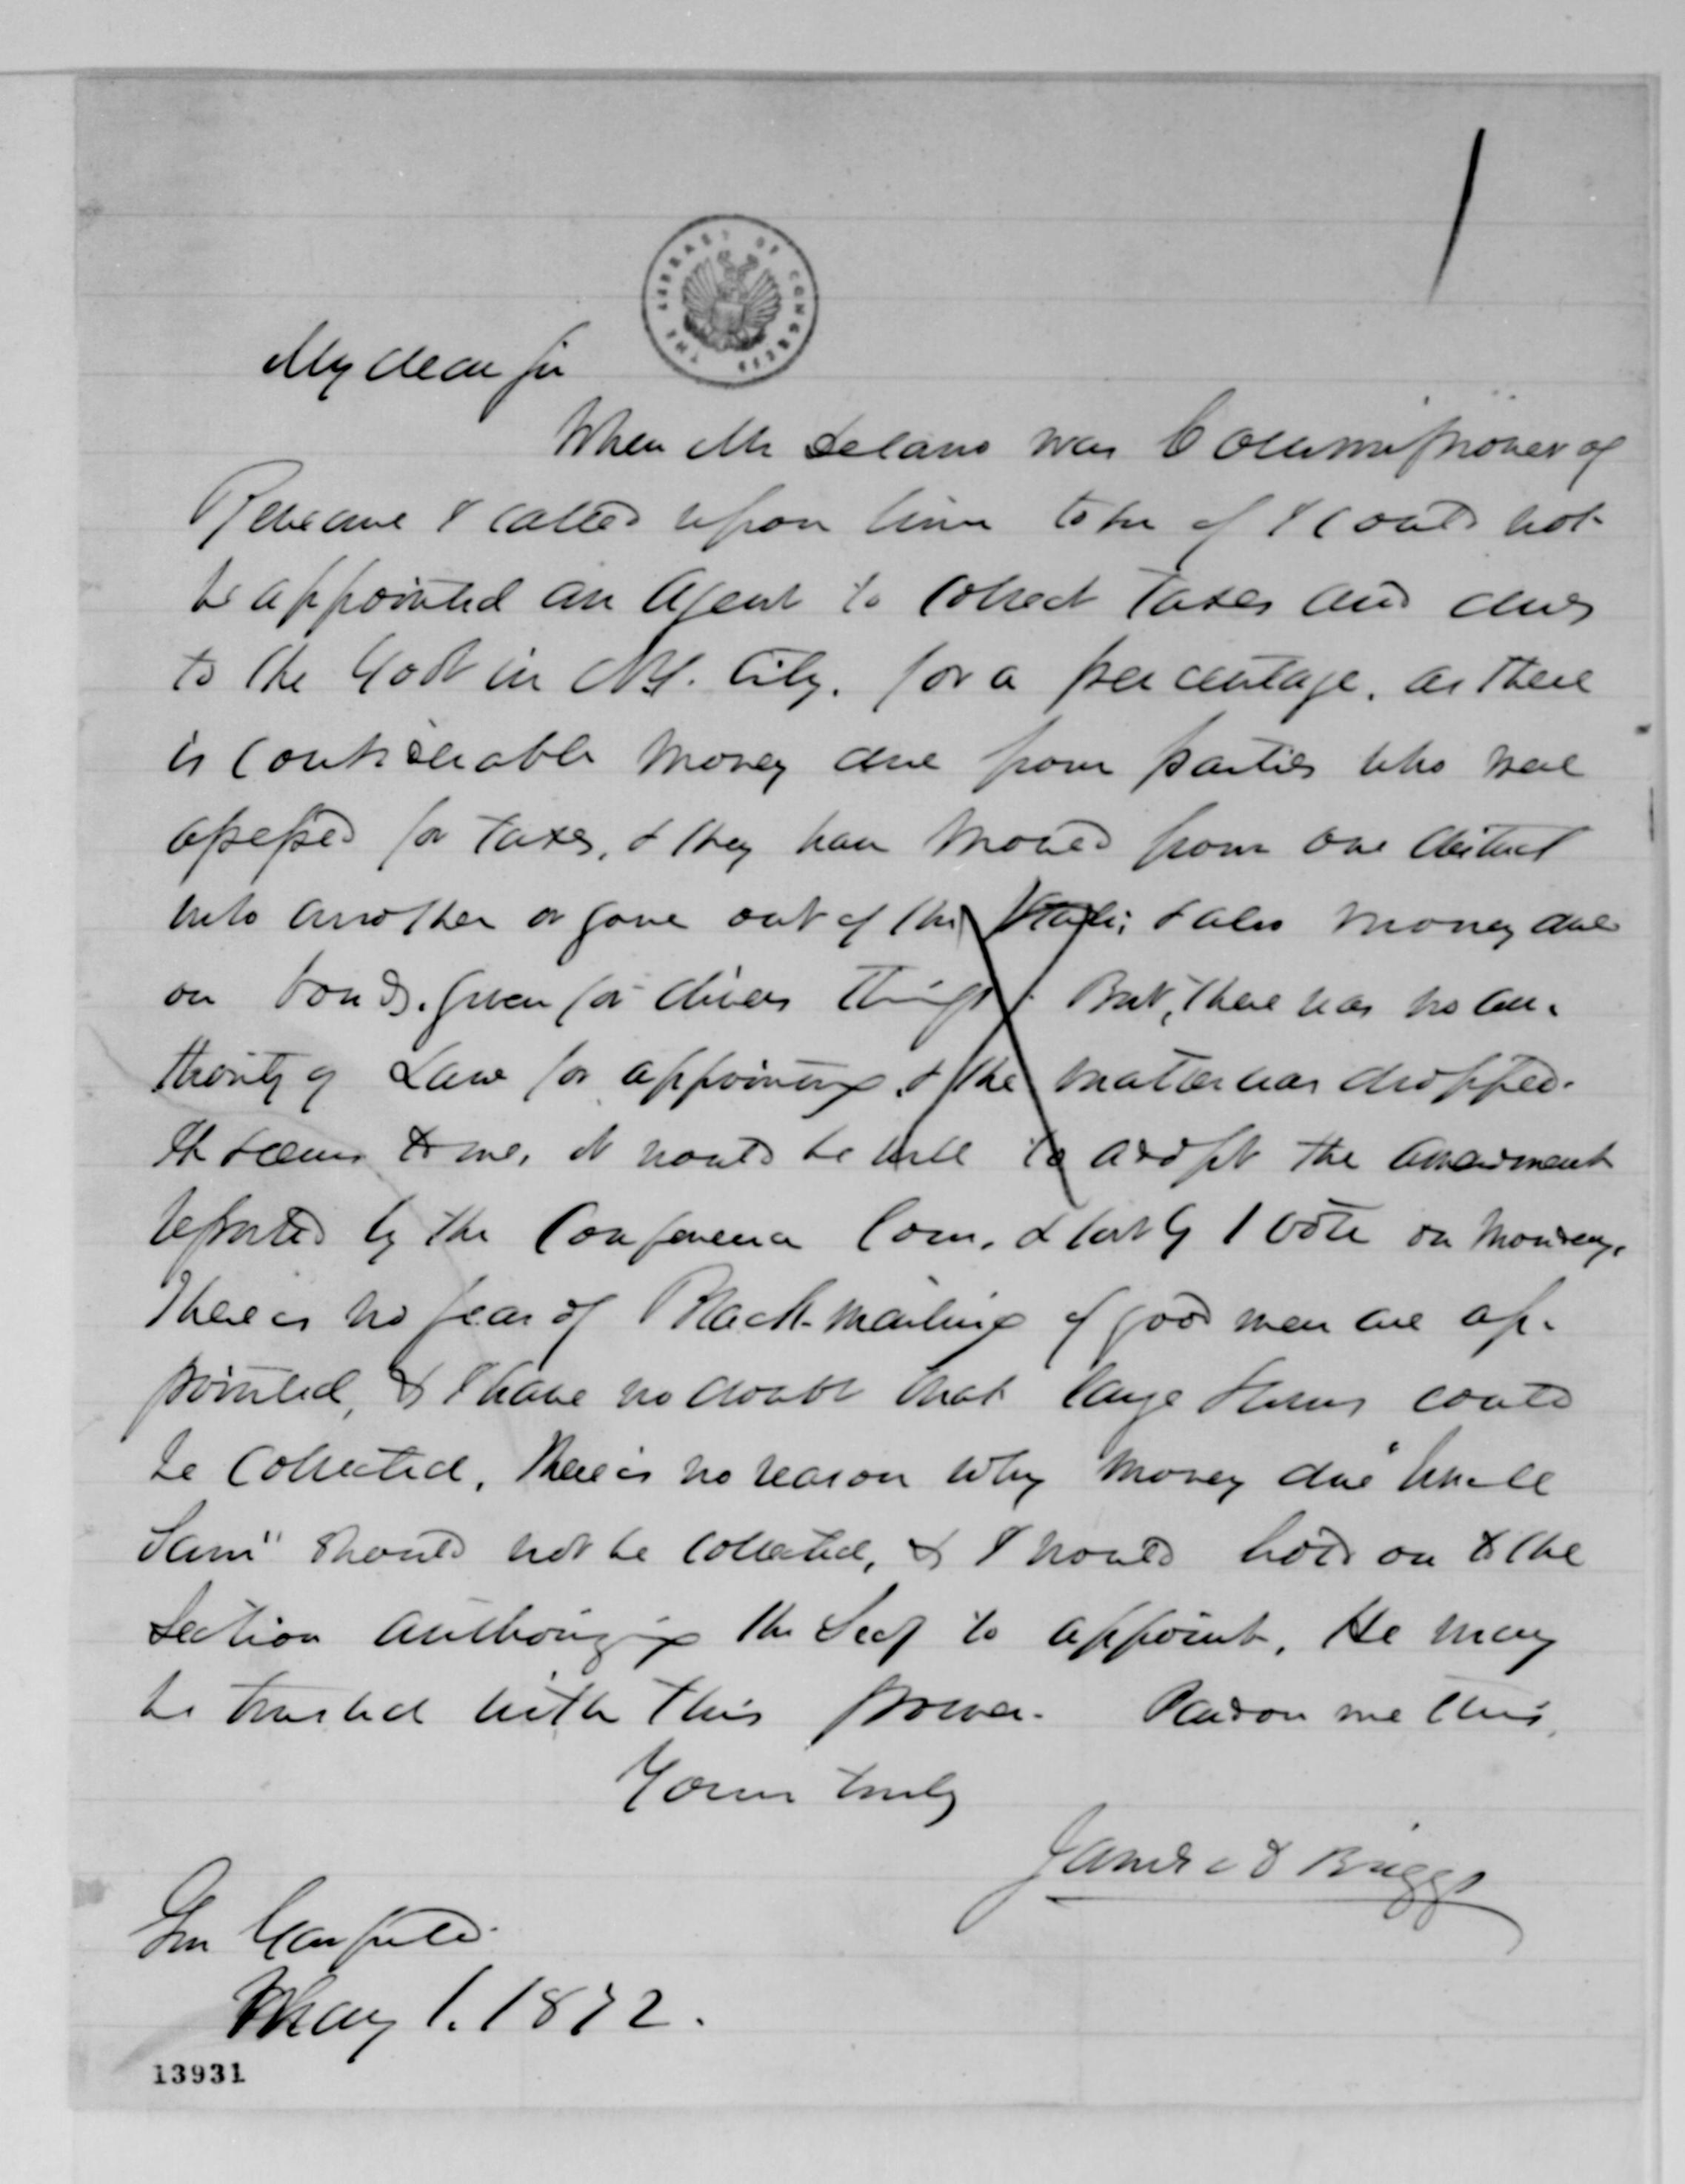 THE LIBRARY OF CONGRESS
My dear Sir
When Mr Delano was Commissioner of
Revenue I called upon him to see if I could not
be appointed an Agent to collect taxes and dues
to the Govt in N.Y. City, for a percentage, as there
is considerable money due from parties who were
assessed for taxes, & they have moved from one district
into another or gone out of the State; & also money due
on bonds given for divers things. But, there was no au-
thority of Law for appointing & the matter was dropped.
It seems to me, it would be well to adopt the amendment
reported by the Conference Com. & lost by 1 vote on Monday.
There is no fear of Black-mailing if good men are ap-
pointed, & I have no doubt that large sums could
be collected. There is no reason why money due "Uncle
Sam" should not be collected, & I would hold on to the
section authorizing the Secy to appoint. He may
be trusted with this power. Pardon me this,
Yours truly
James A Briggs
Gen Garfield
May 1. 1872.
13931